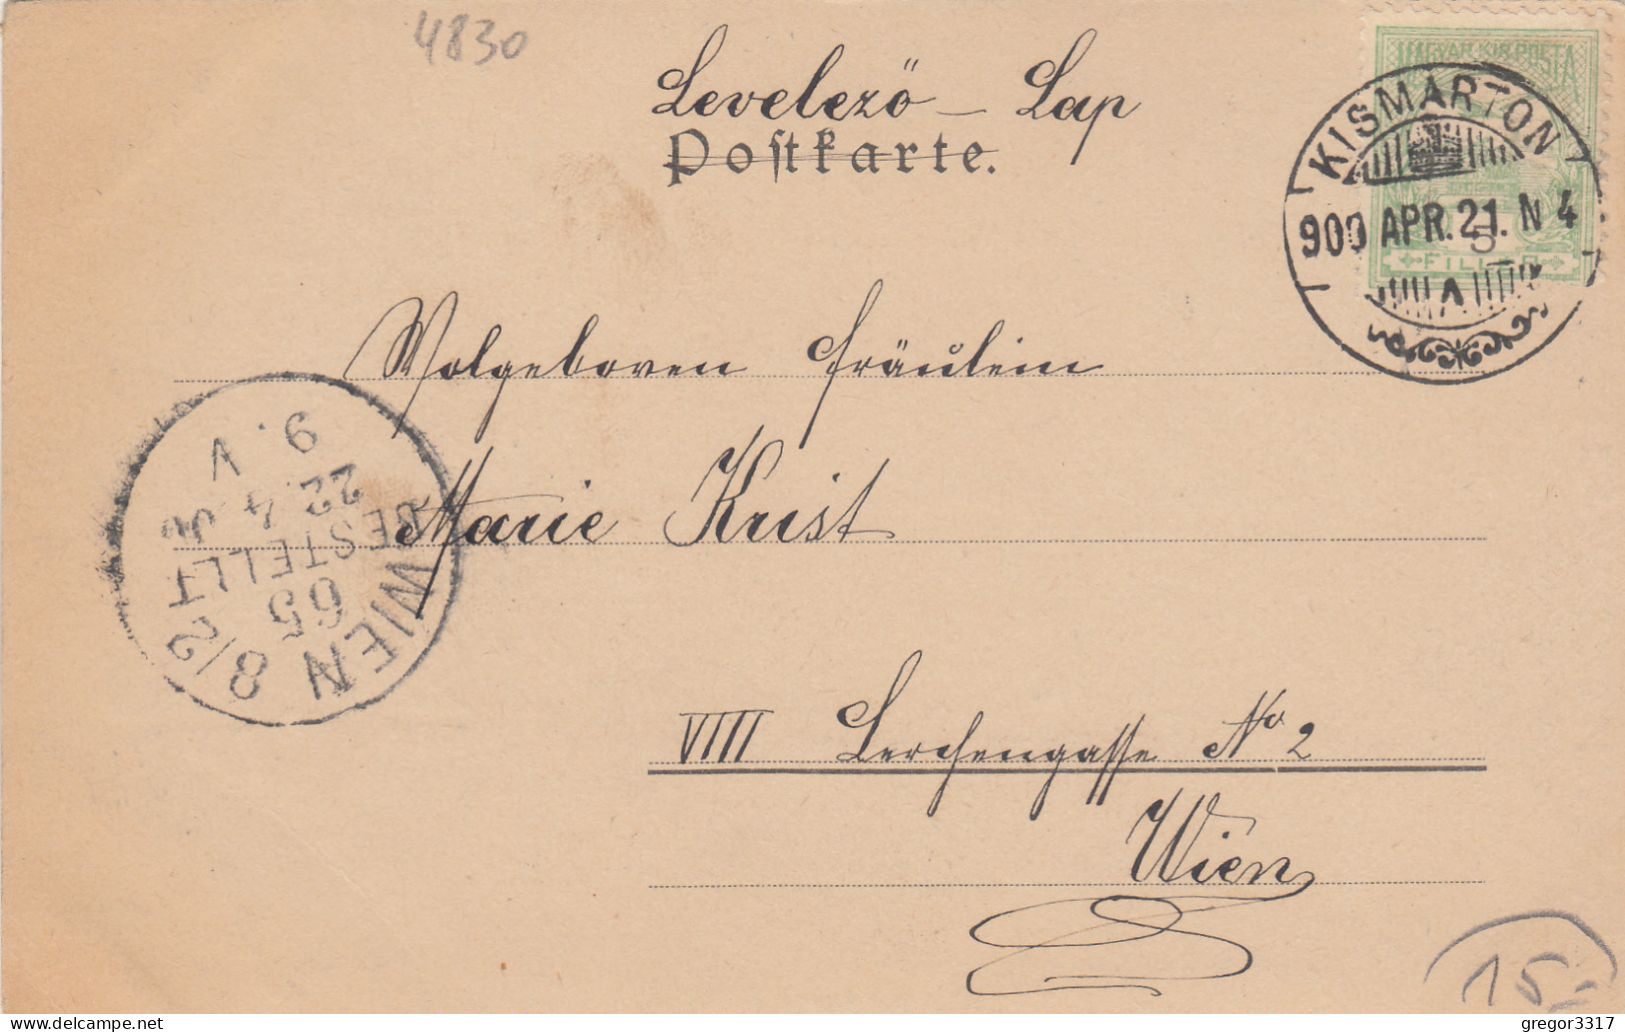 4830
Levelező – Lap
Postkarte.
MAGYAR KIR. POSTA
KISMARTON
900 APR. 21. N 4
5
FILLÉR
Wolgeboren Fräulein
Marie Krist
WIEN 8/2
65
BESTELLT
22.4.00
9. V
VIII Lerchengasse No 2
Wien
15,-
© www.delcampe.net
gregor3317